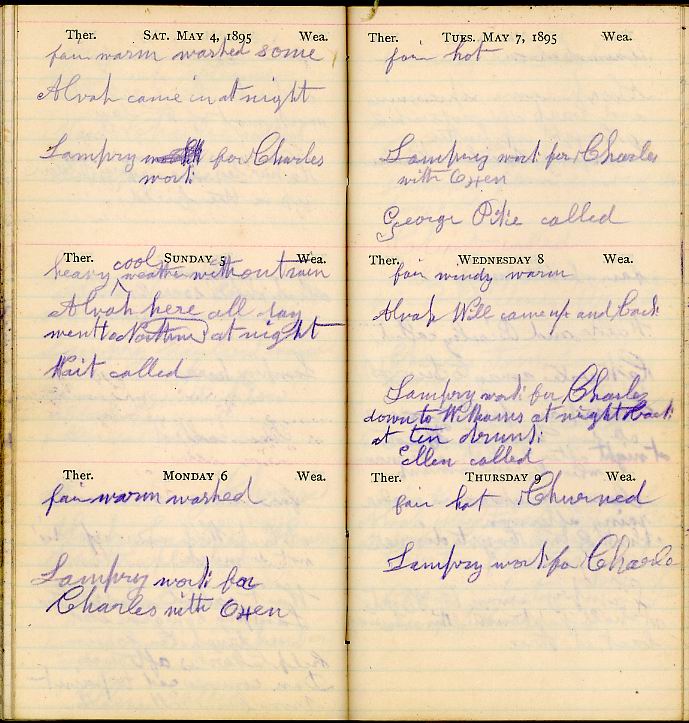 Ther. SAT. MAY 4, 1895 Wea.
fair warm washed some
Alvah came in at night
Lamprey for Charles
work
Ther. SUNDAY 5 Wea.
cool
heavy weather without rain
Alvah here all day
went to at night
Wait called
Ther. MONDAY 6 Wea.
fair warm washed
Lamprey work for
Charles with Oxen
Ther. TUES. MAY 7, 1895 Wea.
fair hot
Lamprey work for Charles
with Oxen
George Pike called
Ther. WEDNESDAY 8 Wea.
fair windy warm
Alvah Will came up and back
Lamprey work for Charles
down to Williams at night back
at ten drunk
Ellen called
Ther. THURSDAY 9 Wea.
fair hot Churned
Lamprey work for Charles